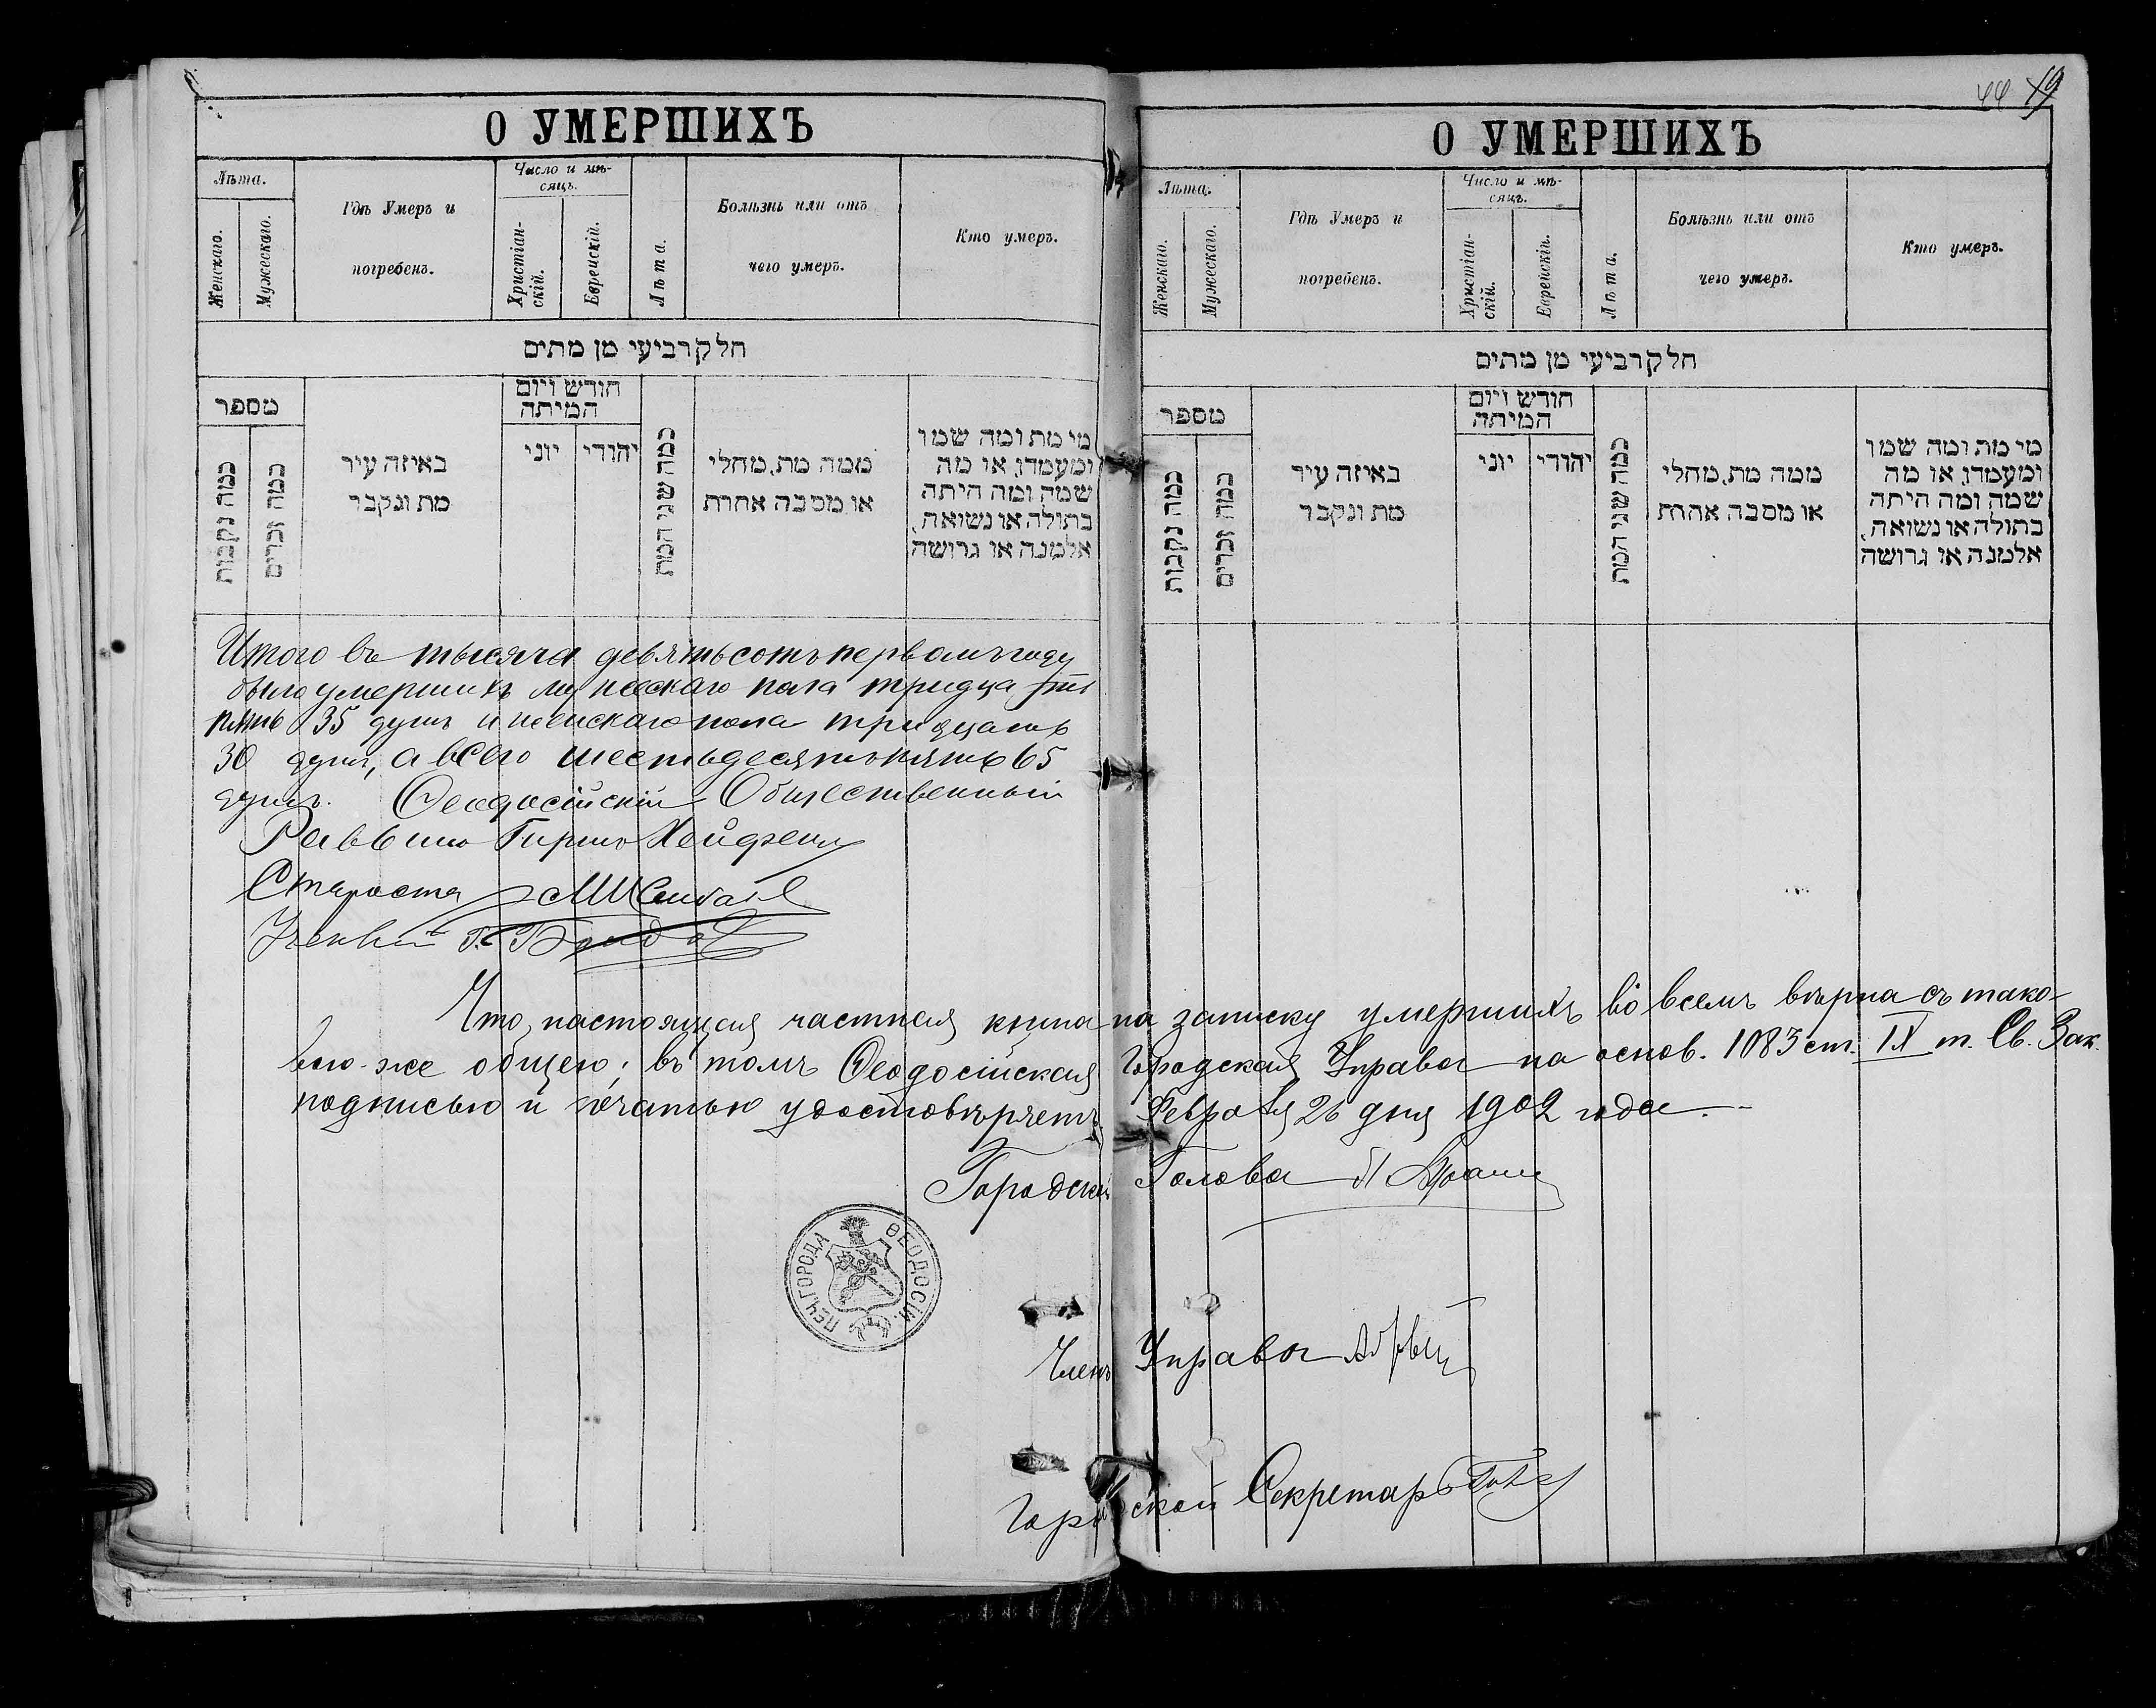 О УМЕРШИХЪ
Лѣта.
Женскаго.
Мужескаго.
Гдѣ Умеръ и
погребенъ.
Число и мѣ-
сяцъ.
Христіан-
скій.
Еврейскій.
Лѣта.
Болѣзнь или отъ
чего умеръ.
Кто умеръ.
חלק רביעי מן מתים
מספר
כמה נקבות
כמה זכרים
באיזה עיר
מת ונקבר
חודש ויום
המיתה
יוני
יהודי
כמה שני המת
ממה מת, מחלי
או מסבה אחרת
מי מת ומה שמו
ומעמדו, או מה
שמה ומה היתה
בתולה או נשואה,
אלמנה או גרושה
Итого въ тысяча девятьсотъ первомъ году
было умершихъ мужескаго пола тридцать
пять 35 душъ и женскаго пола тридцать
30 душъ, а всего шестьдесятъ пять 65
душъ. Ѳеодосійскій Общественный
Раввинъ Гиршъ Хейфецъ
Староста
Ученый
44 19
О УМЕРШИХЪ
Лѣта.
Женскаго.
Мужескаго.
Гдѣ Умеръ и
погребенъ.
Число и мѣ-
сяцъ.
Христіан-
скій.
Еврейскій.
Лѣта.
Болѣзнь или отъ
чего умеръ.
Кто умеръ.
חלק רביעי מן מתים
מספר
כמה נקבות
כמה זכרים
באיזה עיר
מת ונקבר
חודש ויום
המיתה
יוני
יהודי
כמה שני המת
ממה מת, מחלי
או מסבה אחרת
מי מת ומה שמו
ומעמדו, או מה
שמה ומה היתה
בתולה או נשואה,
אלמנה או גרושה
Что настоящая частная книга на записку умершихъ во всемъ вѣрна съ тако-
вою-же общею; въ томъ Ѳеодосійская Городская Управа на основ. 1083 ст. IX т. Св. Зак.
подписью и печатью удостовѣряетъ. Февраля 26 дня 1902 года.
Городской Голова
ПЕЧ. ГОРОДА ѲЕОДОСІИ.
Членъ Управы
Городской Секретарь